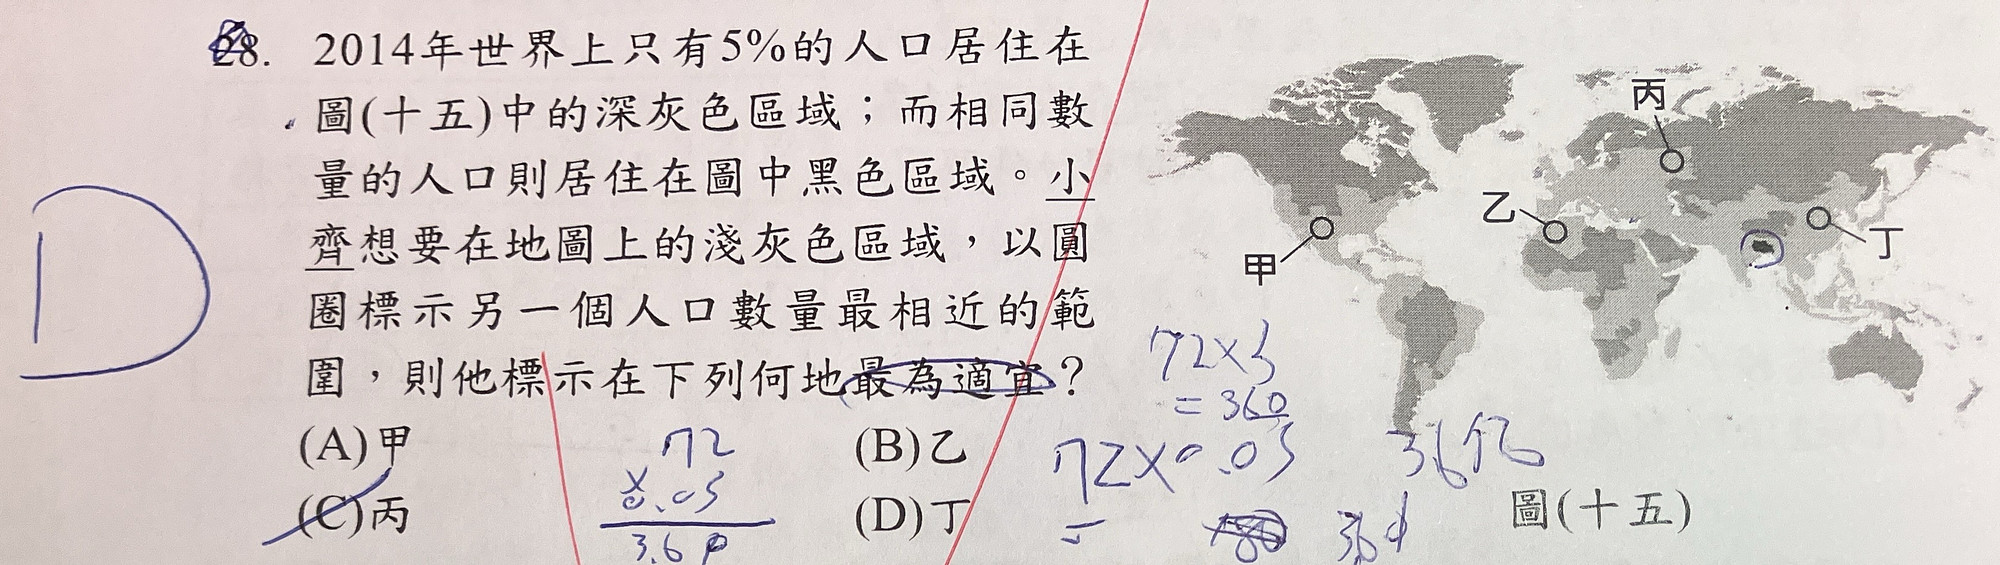 28. 2014年世界上只有5%的人口居住在
圖(十五)中的深灰色區域；而相同數
量的人口則居住在圖中黑色區域。小
齊想要在地圖上的淺灰色區域，以圓
圈標示另一個人口數量最相近的範
圍，則他標示在下列何地最為適宜？
(A)甲
(B)乙
(C)丙
(D)丁
D
72
×0.05
3.60
丙
乙
甲
丁
72×5
=360
72×0.05
=
3.6億
圖(十五)